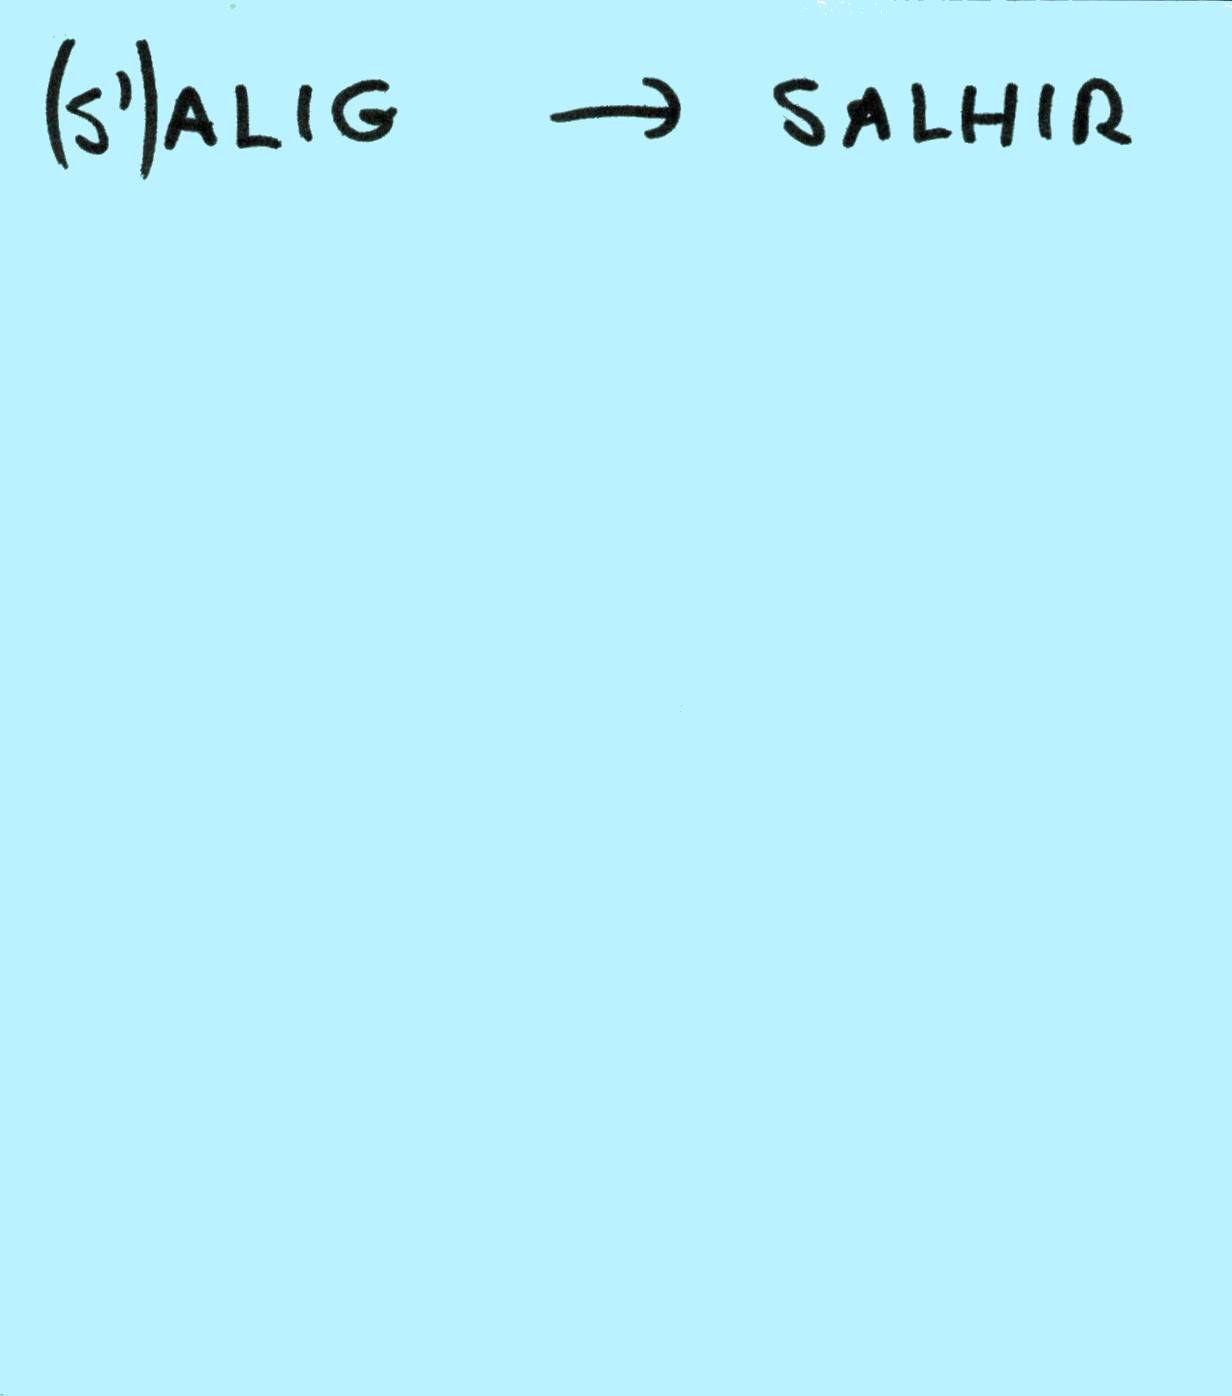 (S')ALIG → SALHIR